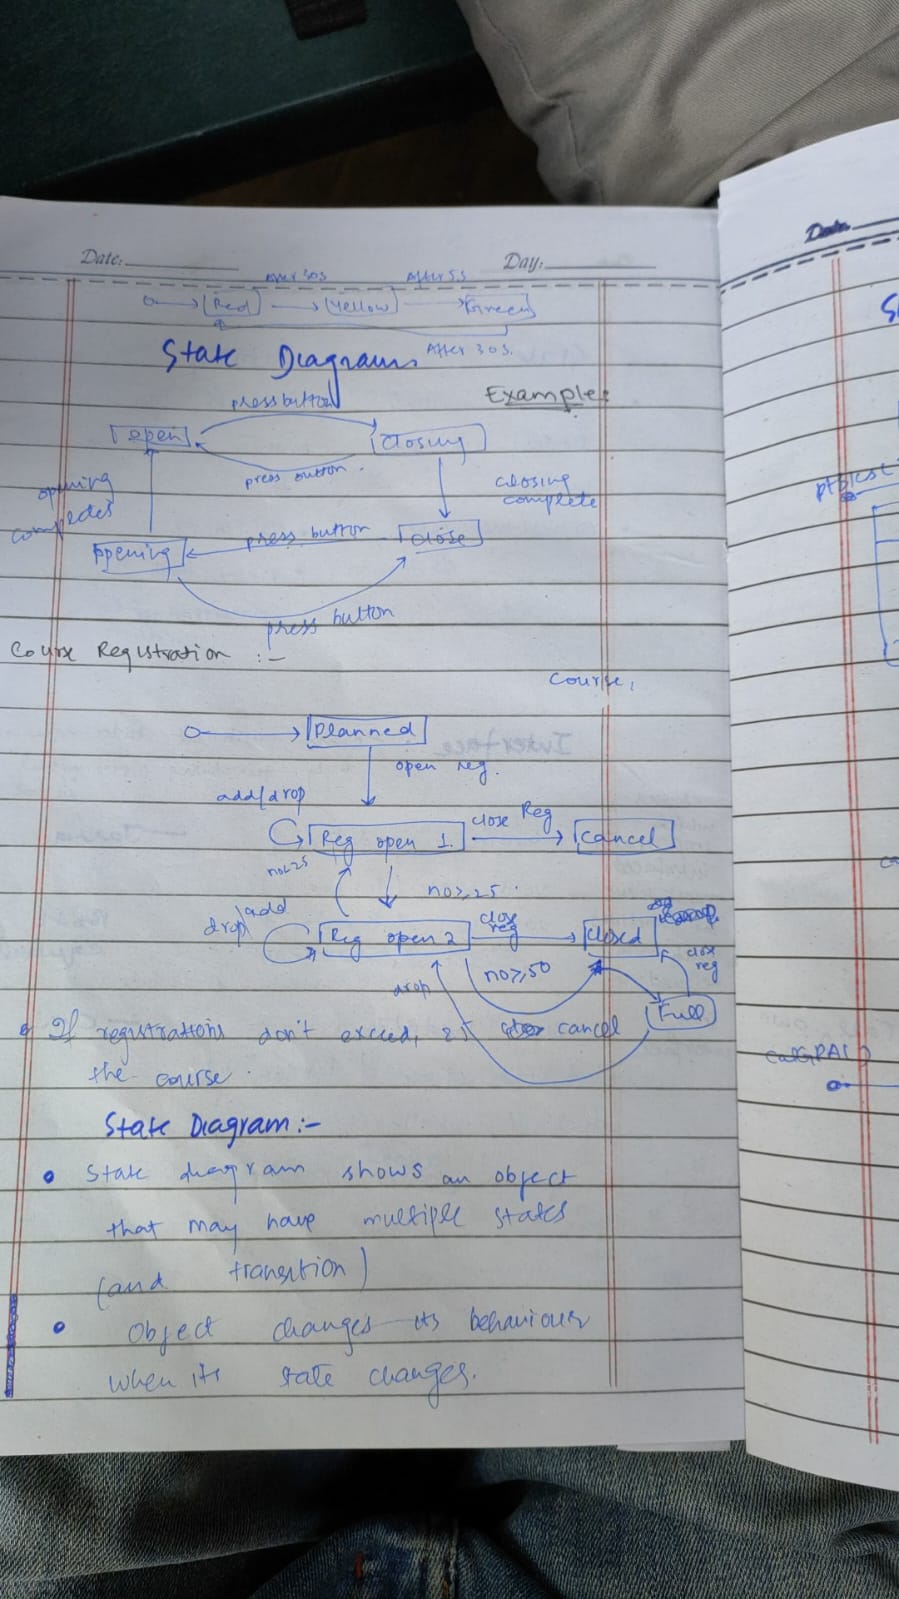 Date: Day:
After 30s After 5s
Red Yellow Green
After 30s.
State Diagrams
Example:
press button
open closing
press button.
opening completes
closing complete
press button
opening close
press button
Course Registration :-
Course,
Planned
open reg.
add/drop
close Reg
Reg open 1. Cancel
no<25
no≥25.
add
drop/
close reg
Reg open 2 closed
close reg
no≥50
drop
Full
If registrations don't exceed, 25 cancel
the course.
State Diagram:-
• State diagram shows an object
that may have multiple states
(and transition)
• Object changes its behaviour
when its state changes.
Date.
Interface